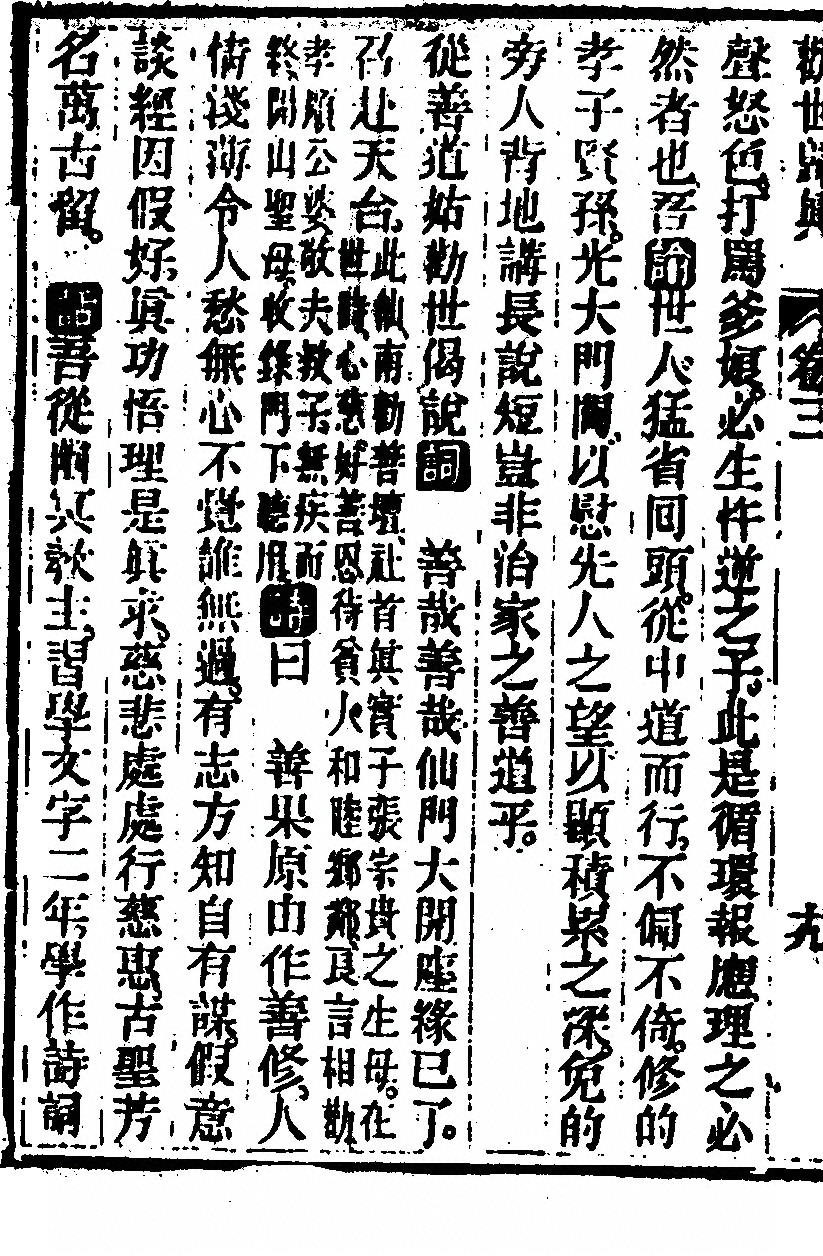 勸世歸真 卷三 九
聲怒色打罵爹娘必生忤逆之子此是循環報應理之必
然者也吾論世人猛省回頭從中道而行不偏不倚修的
孝子賢孫光大門閭以慰先人之望以顯積累之深免的
旁人背地講長說短豈非治家之善道乎
從善道姑勸世偈說詞 善哉善哉仙門大開塵緣已了
召赴天台此仙南勸善壇社首真實子張宗貴之生母在
世時心慈好善恩待貧人和睦鄉鄰良言相勸
孝順公婆敬夫教子無疾而
終開山聖母收錄門下聽用詩曰 善果原由作善修人
情淺薄令人愁無心不覺誰無過有志方知自有謀假意
談經因假好真功悟理是真求慈悲處處行慈惠古聖芳
名萬古留 話吾從幽冥教主習學文字二年學作詩詞